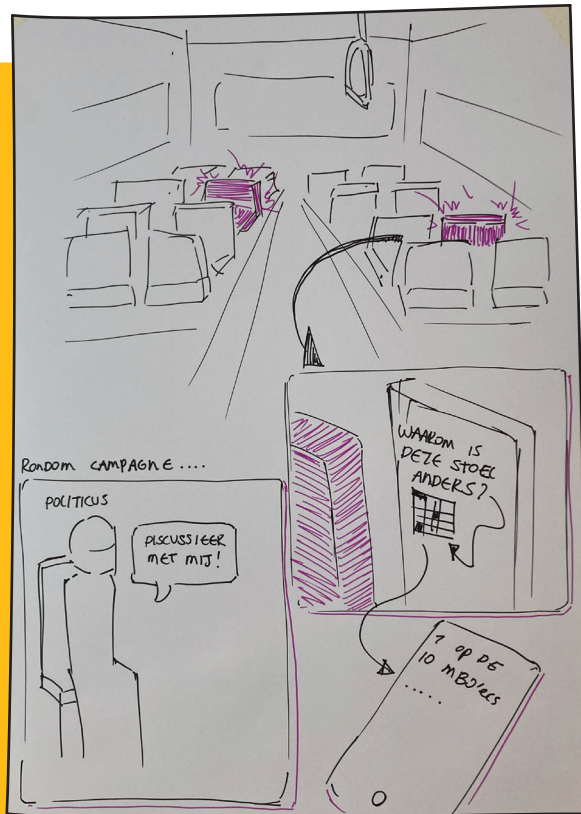 WAAROM IS
DEZE STOEL
ANDERS?
RONDOM CAMPAGNE ....
POLITICUS
DISCUSSIEER
MET MIJ!
1 OP DE
10 MBO'ers
.....